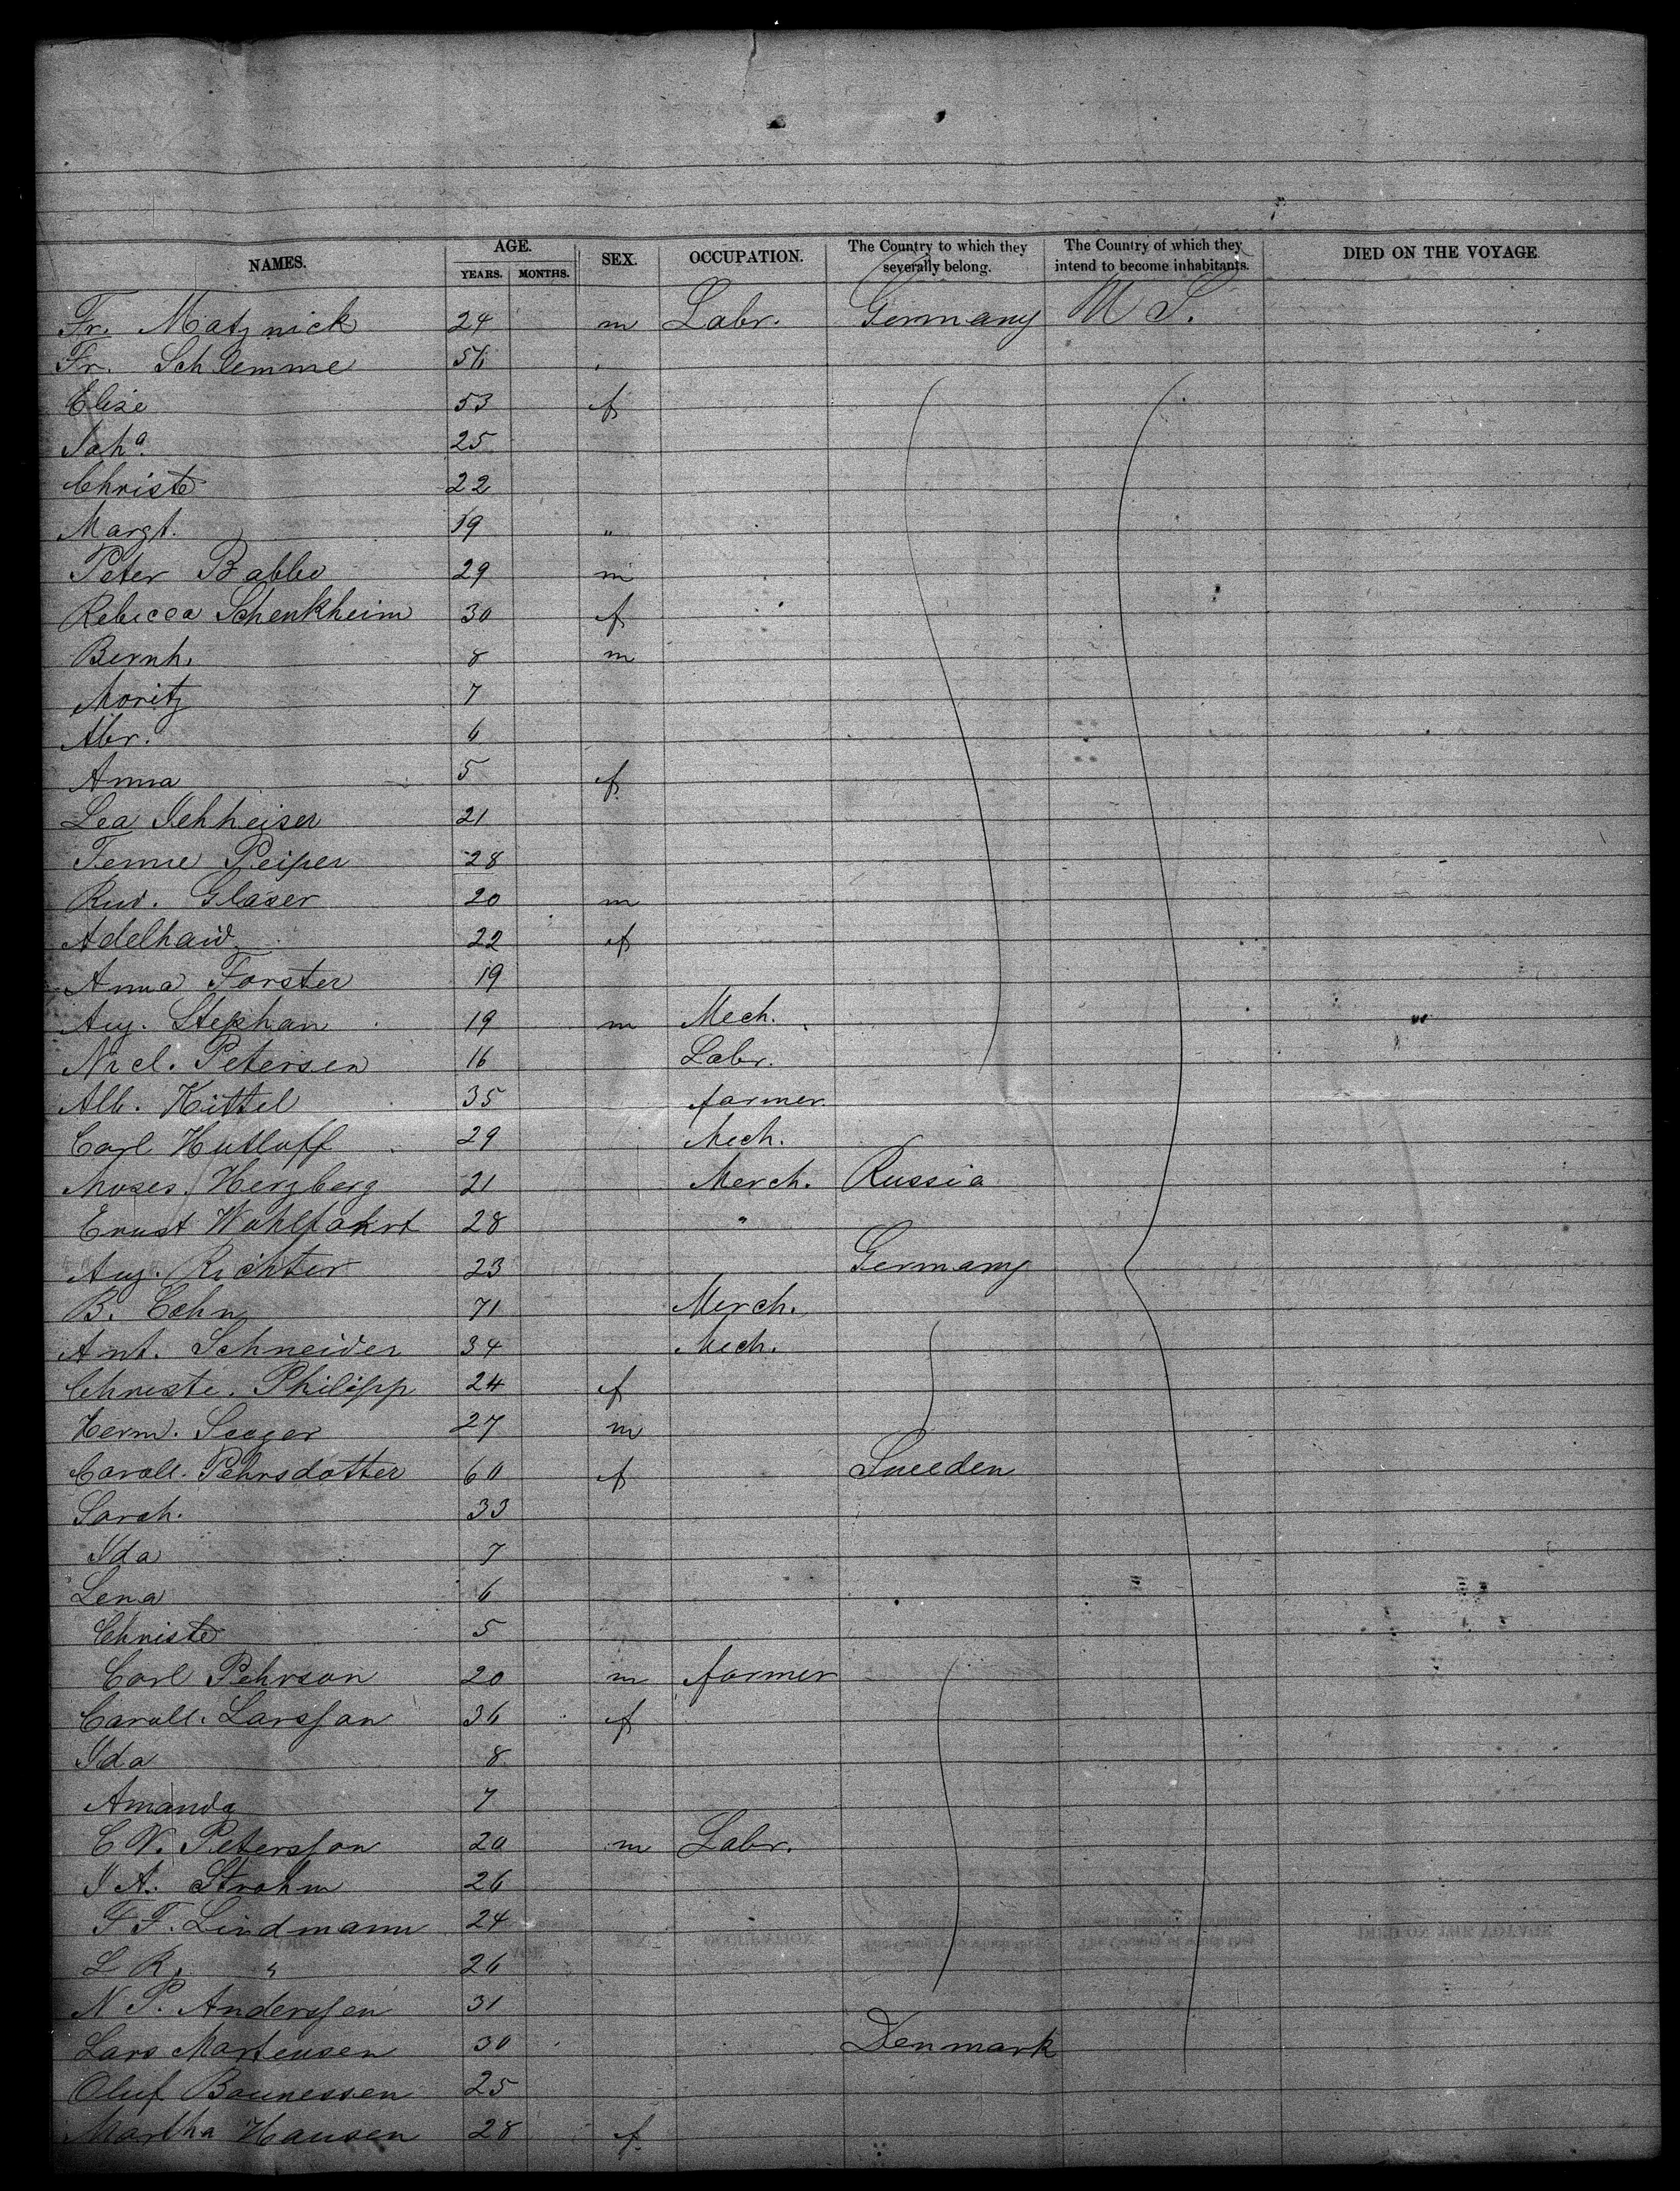 NAMES. AGE. YEARS. MONTHS. SEX. OCCUPATION. The Country to which they severally belong. The Country of which they intend to become inhabitants. DIED ON THE VOYAGE.
Fr. Matznick 24 m Labr. Germany U S.
Fr. Schlemme 56
Elise 53 f
Joha. 25
Christe 22
Margt. 19 "
Peter Babbe 29 m
Rebecca Schenkheim 30 f
Bernh. 8 m
Moritz 7
Abr. 6
Anna 5 f
Lea 21
28
Rud. Glaser 20 m
Adelhaid 22 f
Anna Forster 19
Aug. Stephan 19 m Mech.
Nicl. Petersen 16 Labr.
Alb. Kittel 35 farmer
Carl Hutloff 29 Mech.
Moses Herzberg 21 Merch. Russia
Ernst Wohlfahrt 28 "
Aug. Richter 23 Germany
B. Cohn 71 Merch.
Ant. Schneider 34 Mech.
Christe. Philipp 24 f
Herm. Seeger 27 m
Caroll. Pehrsdotter 60 f Sweeden
Sarah. 33
Ida 7
Lena 6
Christe 5
Carl Pehrson 20 m farmer
Caroll. Larsson 36 f
Ida 8
Amanda 7
C N. Petersson 20 m Labr.
I A. Strohm 26
F F. Lindmann 24
L R. " 26
N P. Anderssen 31
Lars Martensen 30 Denmark
Oluf Bounessen 25
Martha Hansen 28 f